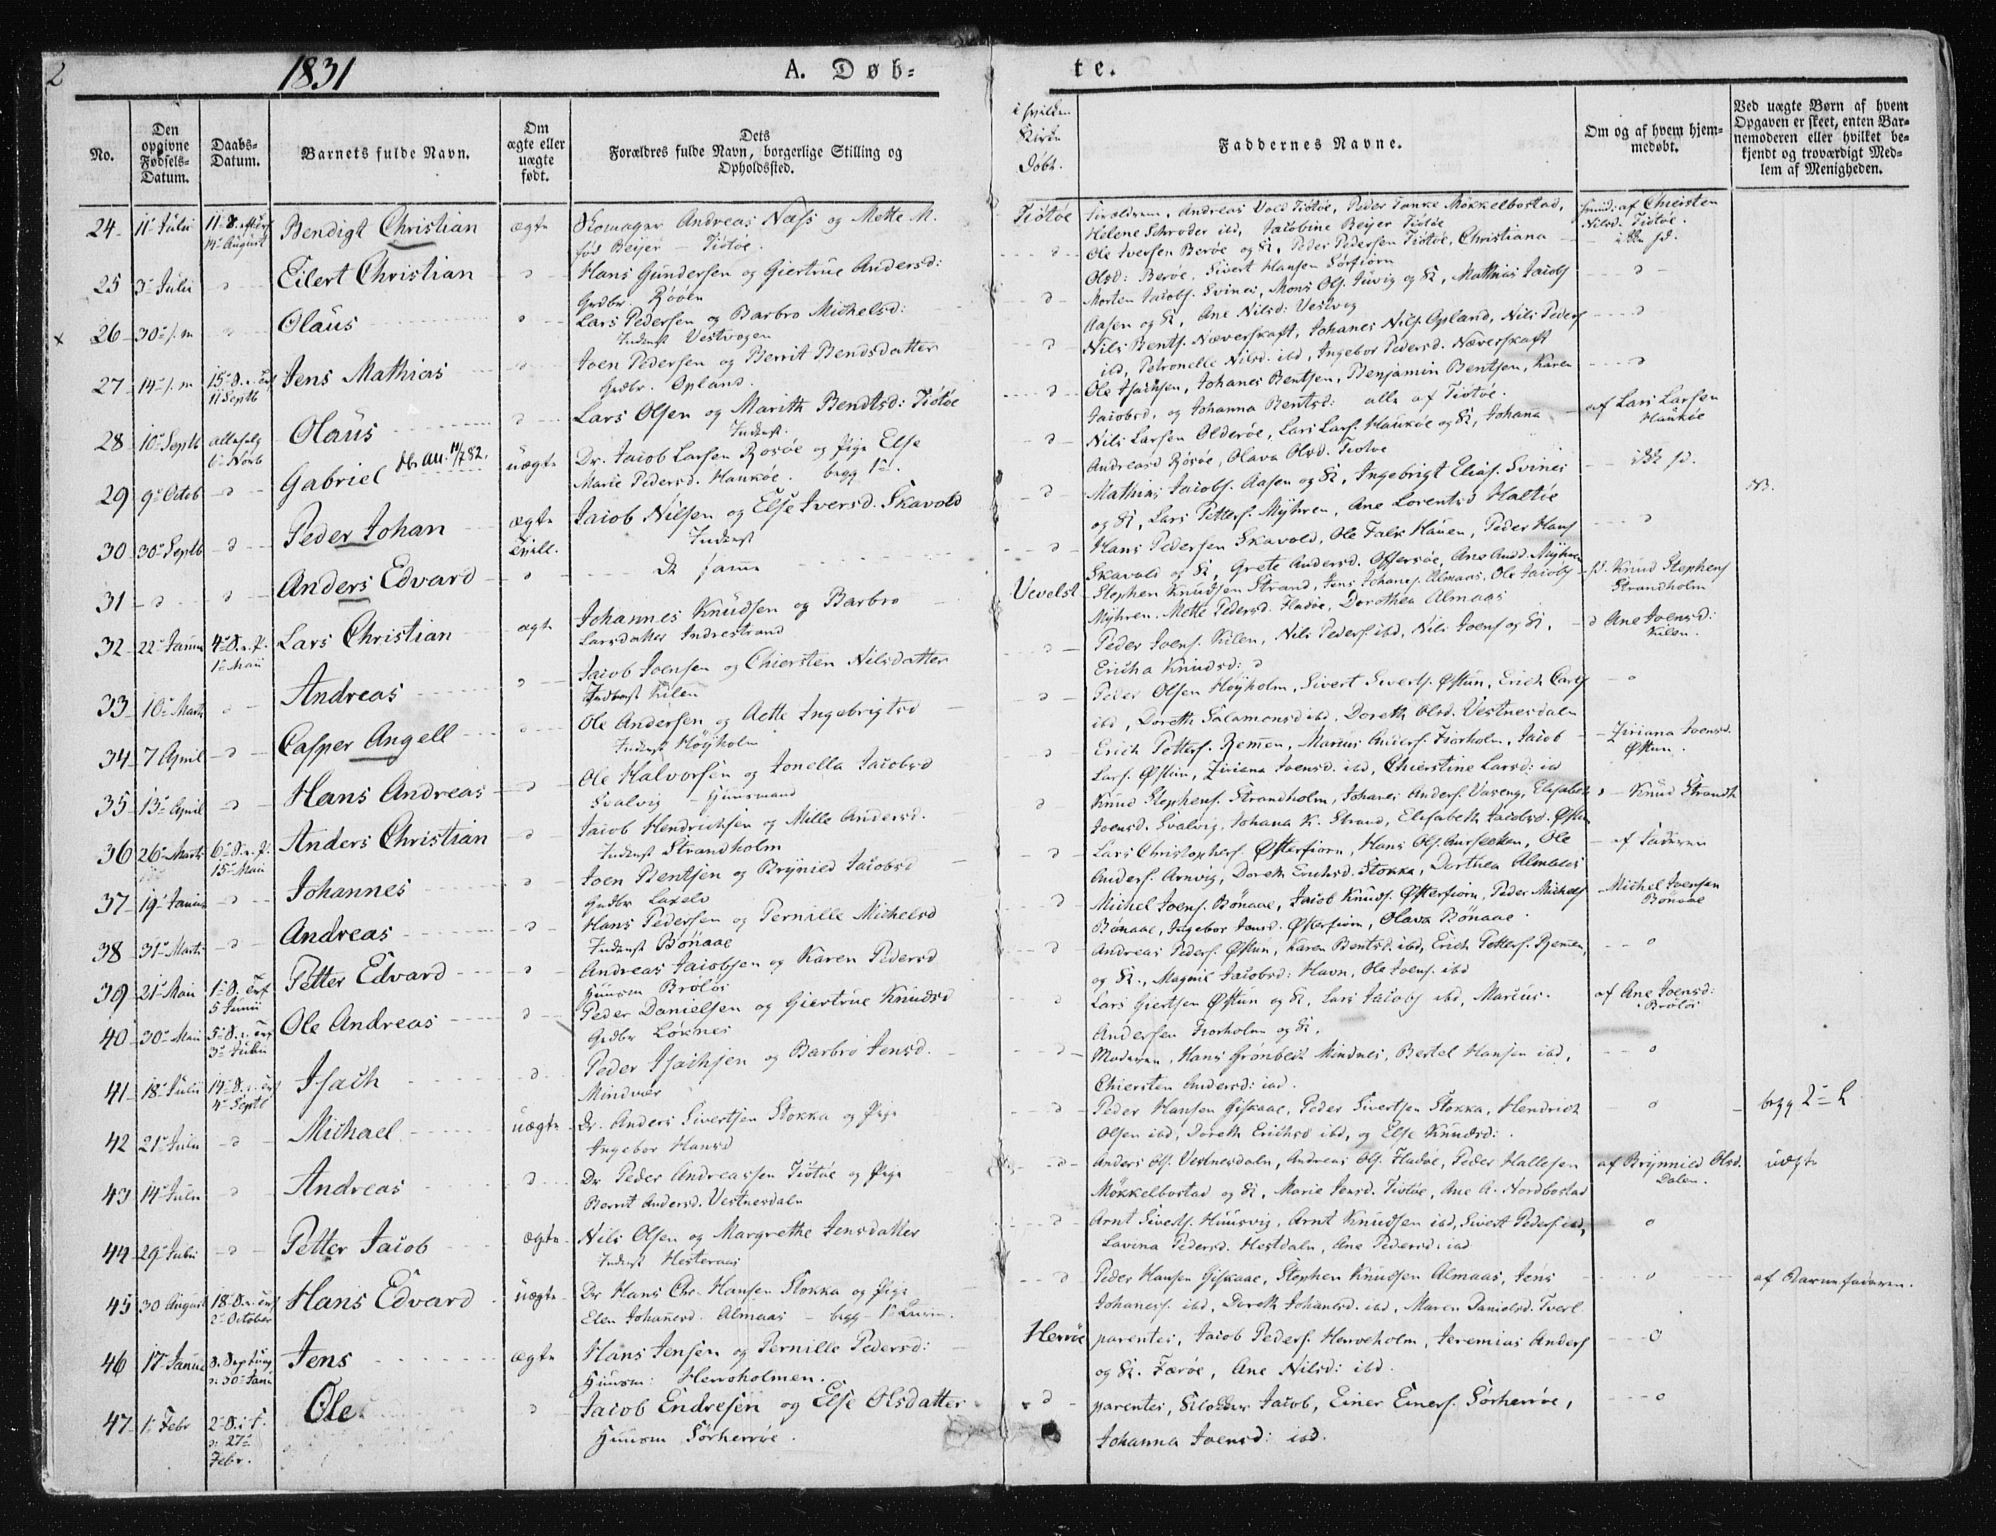 2
1831
A. Døb=
te.
No.
Den opgivne Fødsels-Datum.
Daabs-Datum.
Barnets fulde Navn.
Om ægte eller uægte født.
Dets Forældres fulde Navn, borgerlige Stilling og Opholdssted.
i hvilken Kirke Døbt.
Faddernes Navne.
Om og af hvem hjemmedøbt.
Ved uægte Børn af hvem Opgaven er skeet, enten Barnemoderen eller hvilket bekjendt og troværdigt Medlem af Menigheden.
24 11 Julii 14 August Bendigt Christian ægte Skomager Andreas Næss og Mette M.
fød Beijer - Tiøtøe.
Tiøtøe Forældrene, Andreas Vold Tiøtøe, Peder Tanke Møkkelbostad,
Helene Schrøder ibd, Jacobine Beijer Tiøtøe
af Christen Nilsd. Tiøtøe.
25 3 Julii Eilert Christian Hans Gundersen og Giertrue Andersd:
Grdbr. Røøen
Ole Iversen Berøe og K, Peder Pedersen Tiøtøe, Christiana
Olsd: Berøe, Sivert Hansen Sørfiorn
26 30 Olaus Lars Pedersen og Barbro Michelsd:
Inderst Vestvogen
Morten Jacobs. Svines, Mons Ols. Juvig og K, Mathias Jacobs
Aasen og K, Ane Nilsd: Vestvog
27 14 11 Septb Jens Mathias Joen Pedersen og Berrit Bendsdatter
Grdbr. Opland.
Nils Bents. Næverskaft, Johanes Nils. Opland, Nils Peders
ibd, Petronelle Nilsd. ibd, Ingebor Pedersd. Næverskaft
28 10 Septb 6 Novb Olaus Lars Olsen og Marith Bendtsd: Tiøtøe
Inderst.
Ole Isachsen, Johanes Bentsen, Benjamin Bentsen, Karen
Jacobsd. og Johanna Bentsd: alle af Tiøtøe.
29 9 Octob Gabriel uægte Dr. Jacob Larsen Rosøe og Pige Else
Marie Pedersd. Haukøe. begg 1
Nils Larsen Olderøe, Lars Lars. Haukøe og K, Johana
Andreasd Rosøe, Olava Olsd. Tiøtøe
af Lars Larsen Haukøe
30 30 Septb Peder Johan ægte Tvill. Jacob Nilsen og Else Iversd. Skavold
Inderst
Mathias Jacobs. Aasen og K, Ingebrigt Elias. Svines
og K, Lars Petters. Myhren, Ane Lorentsd Haltøe
NB.
31 Anders Edvard De samme
Hans Pedersen Skavold, Ole Falk Hauen, Peder Hans
Skavold og K, Grete Andersd. Offersøe, Ane Andd. Myhren
32 22 Januar 1 Maii Lars Christian ægte Johannes Knudsen og Barbro
Larsdatter Indrestrand
Vevelst Stephen Knudsen Strand, Jens Johanes. Almaas, Ole Jacobs
Myhren. Mette Pedersd. Fladøe, Dorothea Almaas
Knud Stephens Strandholm
33 10 Marts Andreas Jacob Joensen og Chiersten Nilsdatter
Kilen
Peder Joens. Kilen, Nils Peders. ibd, Nils Joens og K,
Ericha Knudsd:
Ane Joensd: Kilen.
34 7 April Casper Angell Ole Andersen og Aette Ingebrigtsd
Inderst Høyholm
Peder Olsen Høyholm, Sivert Siverts. Østun, Erich Carls
ibd, Doreth Salamonsd ibd, Doreth Olsd. Vestnesdalen
35 13 April Hans Andreas Ole Halvorsen og Jonella Jacobsd
Svalvig - Huusmand
Erich Petters. Remen, Marius Anders. Fiorholm, Jacob
Lars. Østun, Ziriana Joensd. ibd, Chierstine Larsd: ibd
Ziriana Joensd. Østun.
36 26 Marts 15 Maii Anders Christian Jacob Hendrichsen og Mille Andersd.
Inderst Strandholm
Knud Stephens. Strandholm, Johanes Anders. Vaseng, Elisabeth
Joensd. Svalvig, Johana K. Strand, Elisabeth Jacobsd. Østun
Knud Strandh
37 19 Januar Johannes Joen Bentsen og Brynild Jacobsd
Grdbr Laxelv
Lars Christophers. Østerfiorn, Hans Ols. Aursletten, Ole
Anders. Arnvig, Doreth Erichsd. Stokka, Dorthea Almaas
af Faderen
38 31 Marts Andreas Hans Pedersen og Pernille Michelsd
Inderst Bønaae
Michel Joens. Bønaae, Jacob Knuds. Østerfiorn, Peder Michels
Bønaae, Ingebor Jensd. Østerfiorn, Olava Bønaae
Michel Joensen Bønaae
39 21 Maii 5 Junii Petter Edvard Andreas Jacobsen og Karen Pedersd
Huusm Brøløs
Andreas Peders. Østun, Karen Bentsd. ibd, Erich Petters. Remen,
og K., Magnil Jacobsd: Havn, Ole Joens. ibd
40 30 Maii 3 Julii Ole Andreas Peder Danielsen og Giertrue Knudsd
Grdbr Løknes
Lars Giertsen Østun og K, Lars Jacobs ibd, Marius
Andersen Fiorholm og K.
af Ane Joensd: Brøløs
41 18 Julii 4 Septb Isach Peder Isachsen og Barbro Jensd.
Mindnes
Moderen, Hans Grønbech Mindnes, Bertel Hansen ibd,
Chiersten Andersd: ibd.
42 21 Julii Michael uægte Dr. Anders Sivertsen Stokka og Pige
Ingebor Hansd
Peder Hansen Giskaae, Peder Sivertsen Stokka, Hendrich
Olsen ibd, Doreth Erichsd ibd, og Else Knudsd:
begg 2 L
43 14 Julii Andreas Dr Peder Andreassen Tiøtøe og Pige
Berrit Andersd. Vestnesdaln
Anders Ols. Vestnesdaln, Andreas Ols. Fladøe, Peder Hallesen
Møkkelbostad og K, Marie Jensd. Tiøtøe, Ane A. Nordbostad
af Brynnild Olsd. Dalen.
uægte
44 29 Julii Petter Jacob ægte Nils Olsen og Margrethe Jensdatter
Inderst Hesteraas
Arnt Siverts. Huusvig, Arnt Knudsen ibd, Sivert Peders. ibd,
Lavina Pedersd. Hestdaln, Ane Pedersd: ibd
45 30 August 2 October Hans Edvard uægte Dr Hans Chr. Hansen Stokka og Pige
Elen Johanesd. Almaas - begg
Peder Hansen Giskaae, Stephen Knudsen Almaas, Jens
Johanes. ibd, Doreth Johansd. ibd, Maren Danielsd. Tverl
af Barnefaderen.
46 17 Januar 30 Janu Jens ægte Hans Jensen og Pernille Pedersd:
Huusm: Herroholmen.
Herrøe parentes, Jacob Peders. Herroeholm, Jeremias Anders
og K. Færøe, Ane Nilsd: ibd.
47 1 Febr 27 Febr. Ole Jacob Endresen og Else Olsdatter
Huusm Sørherrøe.
parentes, Jacob, Einer Einers. Sørherrøe,
Johanna Joensd: ibd.